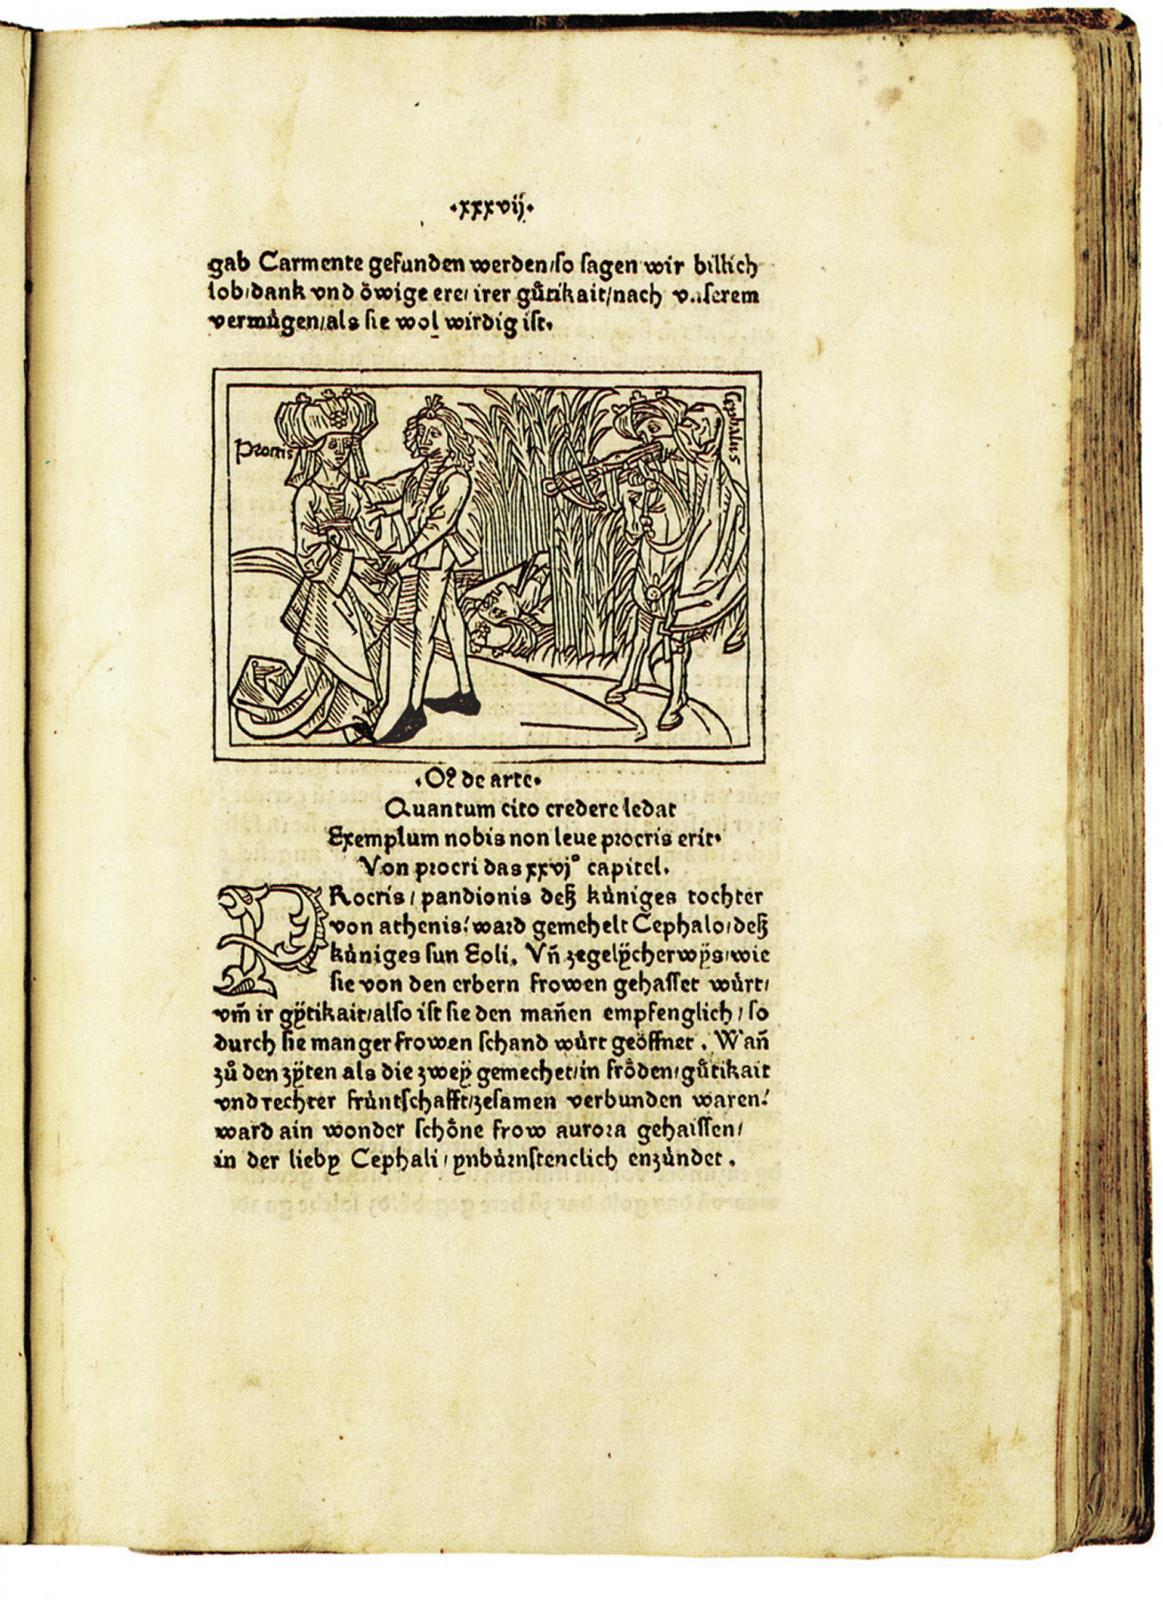 ·xxxvij·
gab Carmente gefunden werden/so sagen wir billich
lob/dank vnd öwige ere/ irer guͤtikait/nach vnserem
vermuͤgen/als sie wol wirdig ist.
Procris
Cephalus
·Oꝛ de arte·
Quantum cito credere ledat
Exemplum nobis non leue pꝛocris erit·
Von pꝛocri das xxvjͦ capitel.
PRocris/pandionis deß kuͤniges tochter
von athenis/ waꝛd gemehelt Cephalo/deß
kuͤniges sun Eoli. Vn̄ zegelÿcherwÿs/wie
sie von den erbern frowen gehasset wuͤrt/
vm̄ ir gÿtikait/also ist sie den man̄en empfenglich/so
durch sie manger frowen schand wuͤrt geöffnet. Wan̄
zuͦ den zÿten als die zweÿ gemechet/in froͤden/guͤtikait
vnd rechter fruͤntschafft/zesamen verbunden waren/
ward ain wonder schoͤne frow auroꝛa gehaissen/
in der lieby Cephali/ynbuͤꝛnstenclich enzuͤndet.